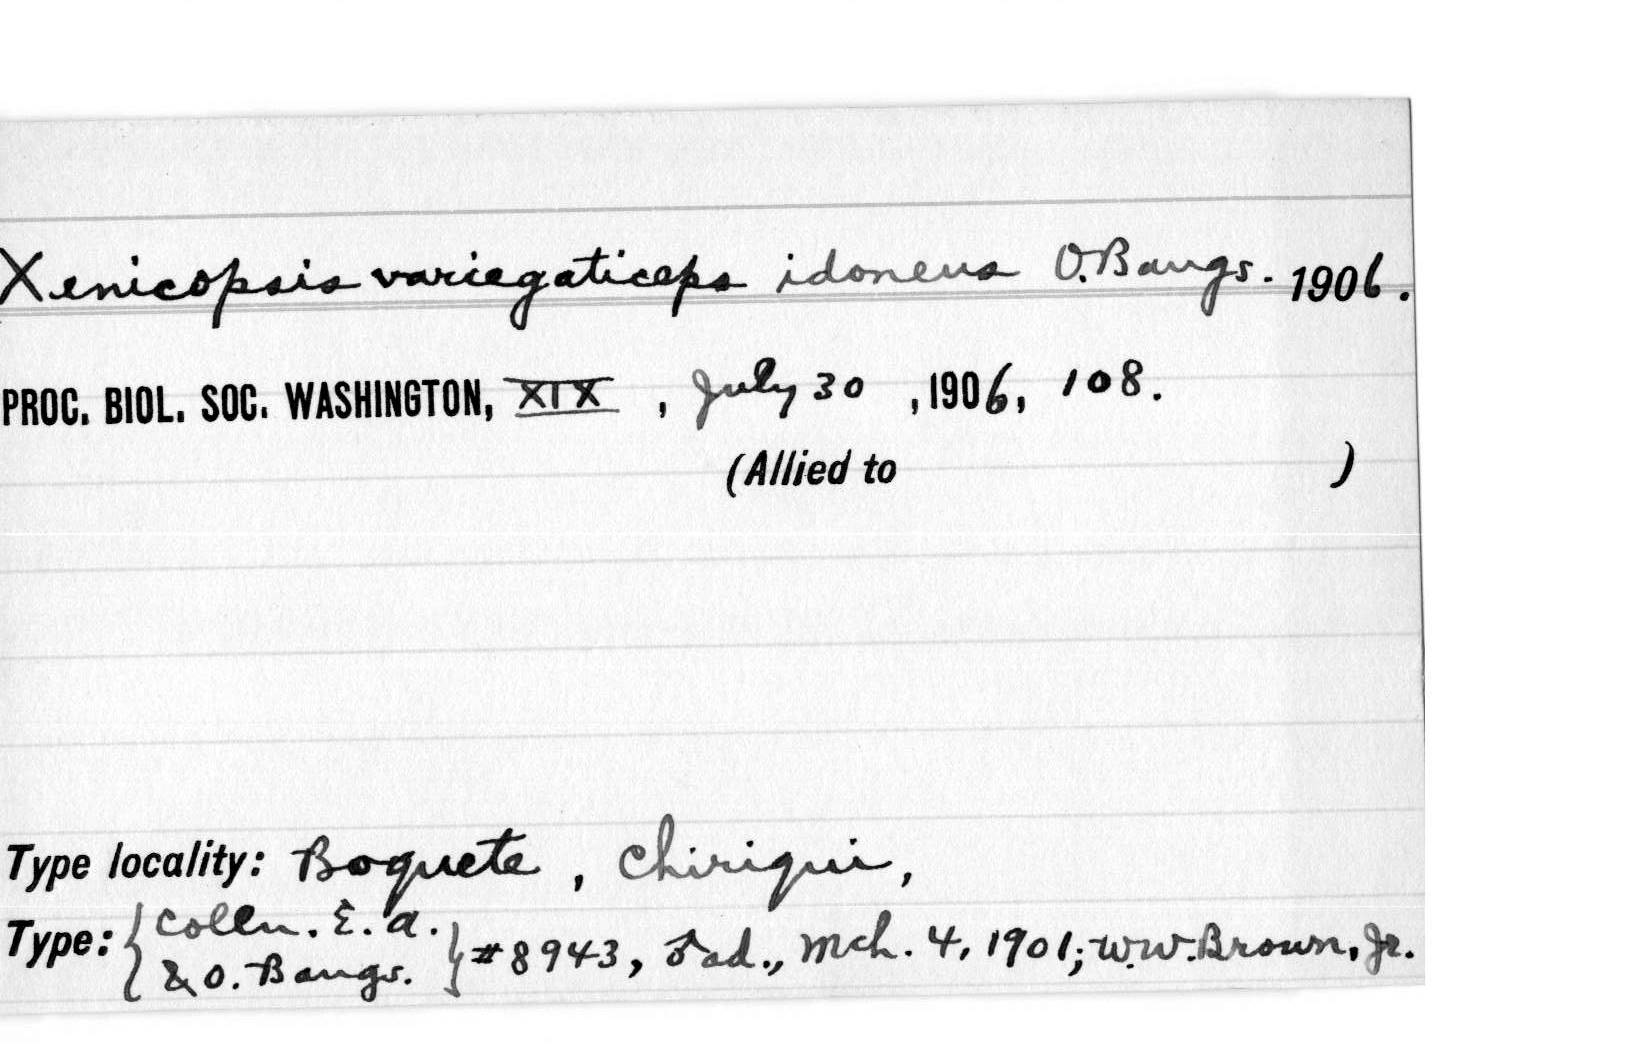 Xenicopsis variegaticeps idoneus O. Bangs. 1906.
PROC. BIOL. SOC. WASHINGTON, XIX, July 30, 1906, 108.
(Allied to )
Type locality: Boquete, Chiriqui,
Type: { Colln. E. A. & O. Bangs. } #8943, ♂ ad., Mch. 4, 1901; W.W. Brown, Jr.